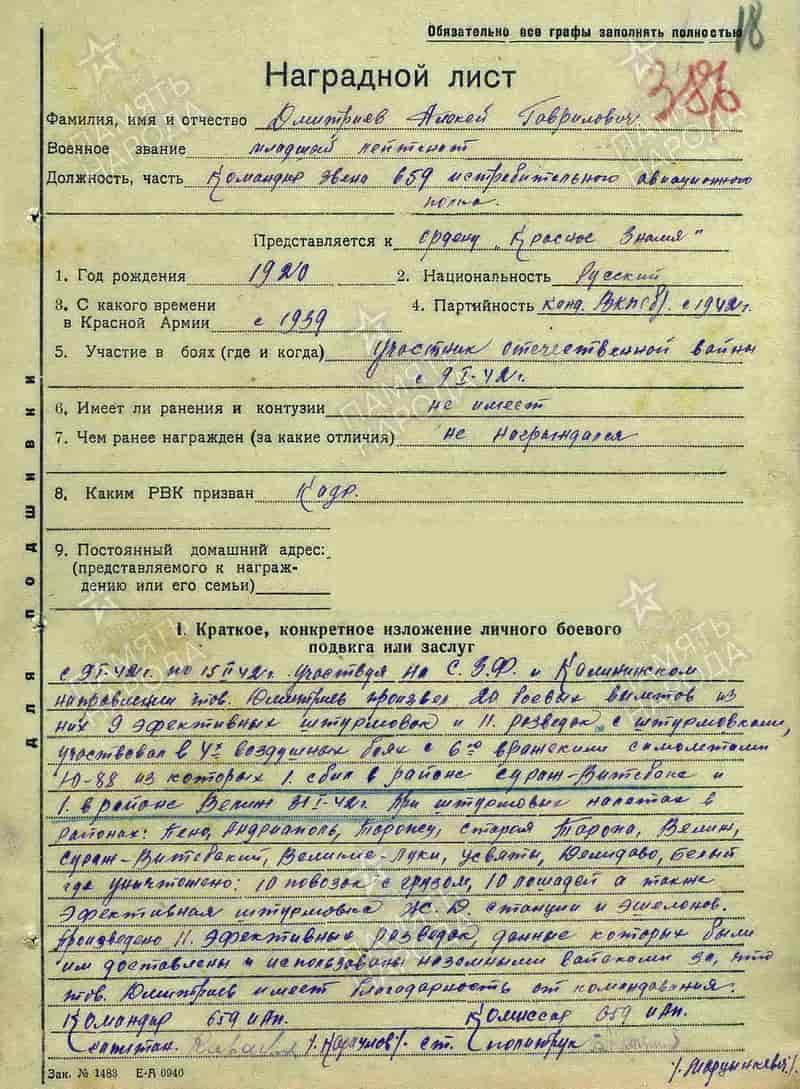 Обязательно все графы заполнять полностью
18
386
Наградной лист
Фамилия, имя и отчество Дмитриев Алексей Гаврилович
Военное звание младший лейтенант
Должность, часть Командир звена 659 истребительного авиационного
полка.
Представляется к ордену „Красное Знамя"
1. Год рождения 1920 2. Национальность Русский
3. С какого времени
в Красной Армии с 1939
4. Партийность канд. ВКП(б). с 1942г.
5. Участие в боях (где и когда) участник отечественной войны
с 9 I-42г.
6. Имеет ли ранения и контузии не имеет
7. Чем ранее награжден (за какие отличия) не награждался
8. Каким РВК призван Кадр.
9. Постоянный домашний адрес:
(представляемого к награж-
дению или его семьи)
для подшивки
1. Краткое, конкретное изложение личного боевого
подвига или заслуг
с 9 I-42г. по 15 II 42г. участвуя на С.З.Ф. и Калининском
направлении тов. Дмитриев произвел 20 боевых вылетов из
них 9 эфективных штурмовок и 11. разведок с штурмовками,
участвовал в 4х воздушных боях с 6ю вражескими самолетами
Ю-88 из которых 1. сбил в районе Сураж-Витебск и
1. в районе Велиж 31 I-42г. При штурмовых налетах в
районах: Пено, Андриаполь, Торопец, Старая Торопа, Велиж,
Сураж-Витебский, Великие-Луки, Усвяты, Демидово, Белый
где уничтожено: 10 повозок с грузом, 10 лошадей а также
эфективная штурмовка Ж.Д станции и эшелонов.
Произведено 11. эфективных разведок, данные которых были
им доставлены и использованы наземными войсками за, что
тов. Дмитриев имеет благодарность от командования.
Командир 659 иап. Комиссар 659 иап.
капитан. ст. политрук
/. Марцинкевич/.
Зак. № 1483 Е-А 0940
ПАМЯТЬ НАРОДА